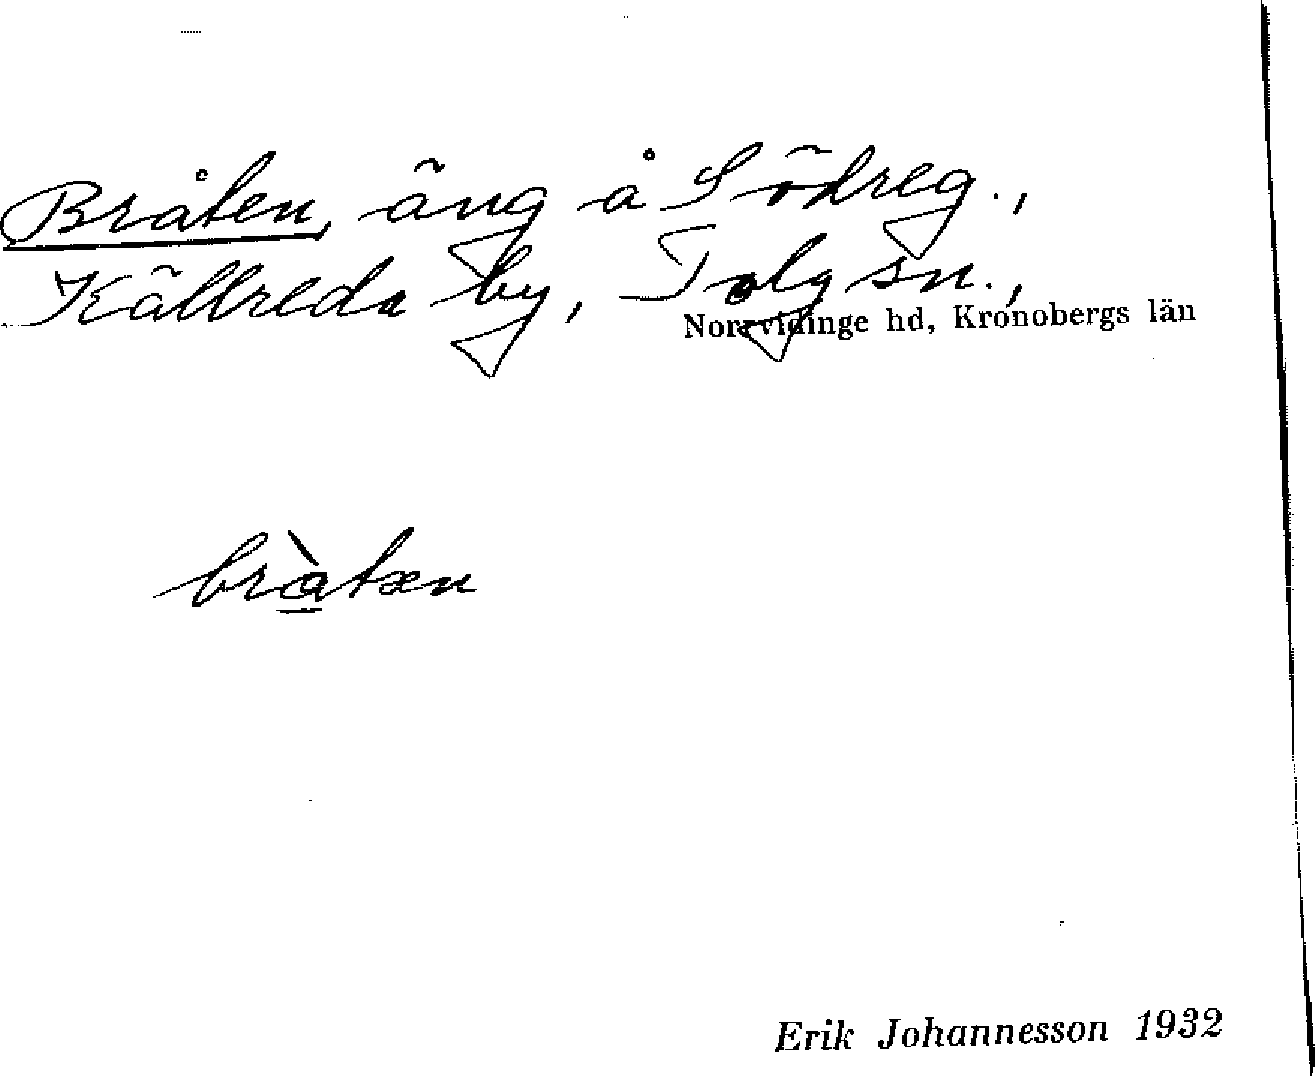 Bråten, äng å Södreg.,
Källreda by, Tolg sn.,
Norrvidinge hd, Kronobergs län
bràtæn
Erik Johannesson 1932